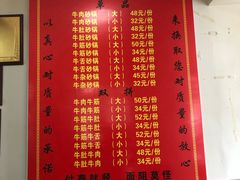 单品
牛肉砂锅（大）48元/份
牛肉砂锅（小）32元/份
牛肚砂锅（大）48元/份
牛肚砂锅（小）32元/份
牛筋砂锅（大）52元/份
牛筋砂锅（小）34元/份
牛舌砂锅（大）52元/份
牛舌砂锅（小）34元/份
牛杂砂锅（大）45元/份
牛杂砂锅（小）32元/份
双拼
牛肉牛筋（大）50元/份
牛肉牛筋（小）34元/份
牛筋牛肚（大）52元/份
牛筋牛肚（小）34元/份
牛筋牛舌（大）52元/份
牛筋牛舌（小）34元/份
牛肚牛肉（大）50元/份
牛肚牛肉（小）34元/份
以真心对质量的承诺
来换取您对质量的放心